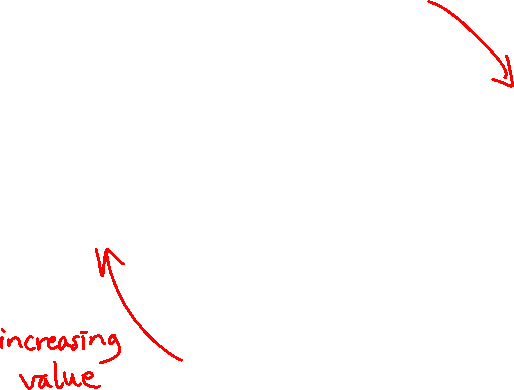 increasing
value